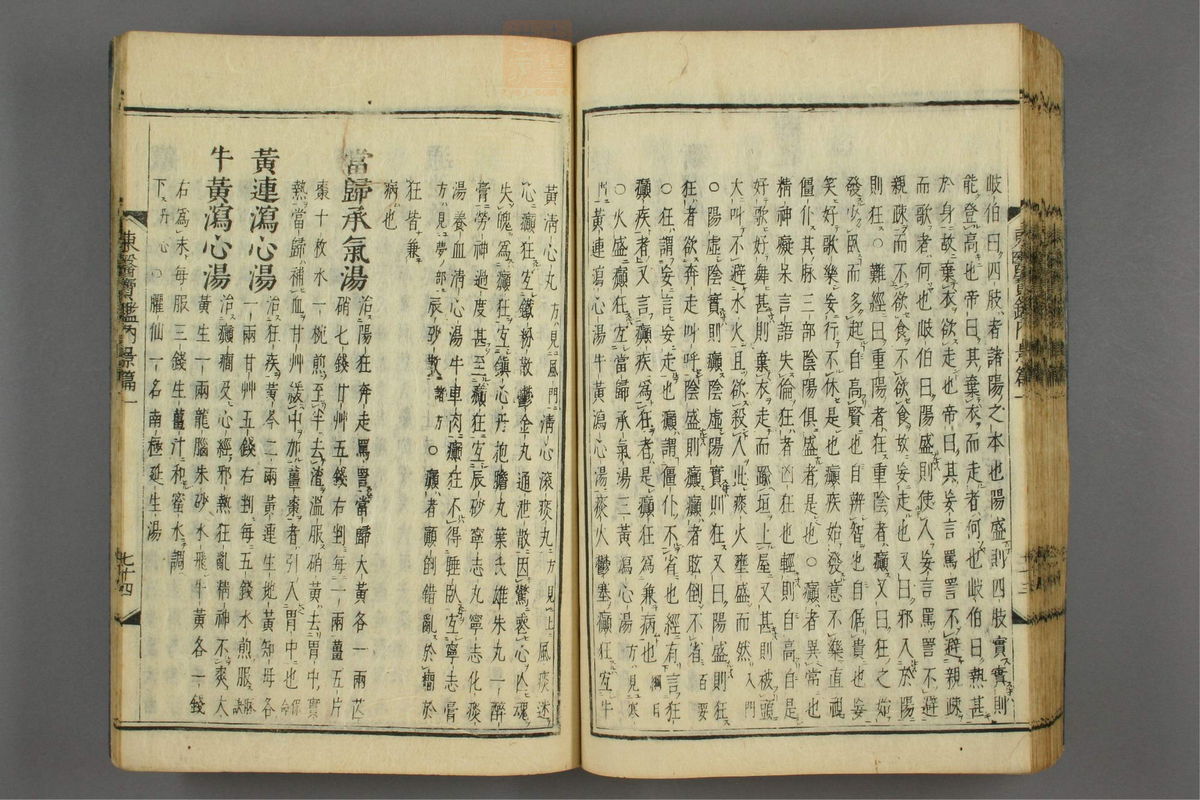 岐伯曰四肢者諸陽之本也陽盛則四肢實實則
能登高也帝曰其棄衣而走者何也岐伯曰熱甚
於身故棄衣欲走也帝曰其妄言罵詈不避親疎
而歌者何也岐伯曰陽盛則使人妄言罵詈不避
親疎而不欲食不欲食故妄走也又曰邪入於陽
則狂○難經曰重陽者狂重陰者癲又曰狂之始
發少臥而多起自高賢也自辨智也自倨貴也妄
笑好歌樂妄行不休是也癲疾始發意不樂直視
僵仆其脉三部陰陽俱盛者是也○癲者異常也
精神癡呆言語失倫狂者凶狂也輕則自高自是
好歌好舞甚則棄衣走而踰垣上屋又甚則被頭
大叫不避水火且欲殺人此痰火壅盛而然入門
○陽虛陰實則癲陰虛陽實則狂又曰陽盛則狂
狂者欲奔走叫呼陰盛則癲癲者眩倒不省百要
○狂謂妄言妄走也癲謂僵仆不省也經有言狂
癲疾者又言癲疾爲狂者是癲狂爲兼病也綱目
○火盛癲狂宜當歸承氣湯三黃瀉心湯方見寒
門黃連瀉心湯牛黃瀉心湯痰火鬱塞癲狂宜牛
東醫寶鑑內景篇一
七十三
黃清心丸方見風門清心滾痰丸方見上風痰迷
心癲狂宜鐵粉散鬱金丸通泄散因驚喪心亡魂
失魄爲癲狂宜鎮心丹抱膽丸葉氏雄朱丸一醉
膏勞神過度甚至癲狂宜辰砂寧志丸寧志化痰
湯養血清心湯牛車肉癲狂不得睡臥宜寧志膏
方見夢部辰砂散諸方○癲者顚倒錯亂於癎於
狂皆兼
病也
當歸承氣湯治陽狂奔走罵詈當歸大黃各一兩芒
硝七錢甘艸五錢右剉每一兩薑五片
棗十枚水一椀煎至半去渣溫服硝黃去胃中實
熱當歸補血甘艸緩中加薑棗者引入胃中也保命
黃連瀉心湯治狂疾黃芩二兩黃連生地黃知母各
一兩甘艸五錢右剉每五錢水煎服脉訣
牛黃瀉心湯治癲癎及心經邪熱狂亂精神不爽大
黃生一兩龍腦朱砂水飛牛黃各一錢
右爲末每服三錢生薑汁和蜜水調
下丹心○臞仙一名南極延生湯
東醫寶鑑內景篇一
七十四